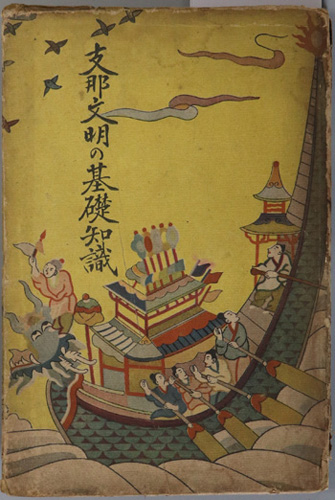 支那文明の基礎知識